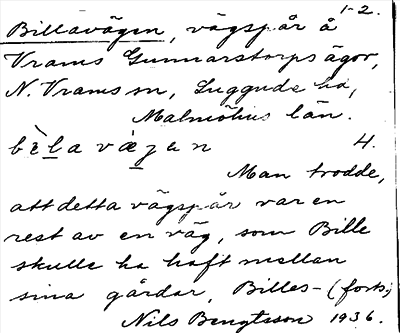 1-2.
Billavägen, vägspår å
Vrams Gunnarstorps ägor,
N. Vrams sn, Luggude hd,
Malmöhus län.
bèla vägen 4.
Man trodde,
att detta vägspår var en
rest av en väg, som Bille
skulle ha haft mellan
sina gårdar, Billes- (forts.)
Nils Bengtsson 1936.